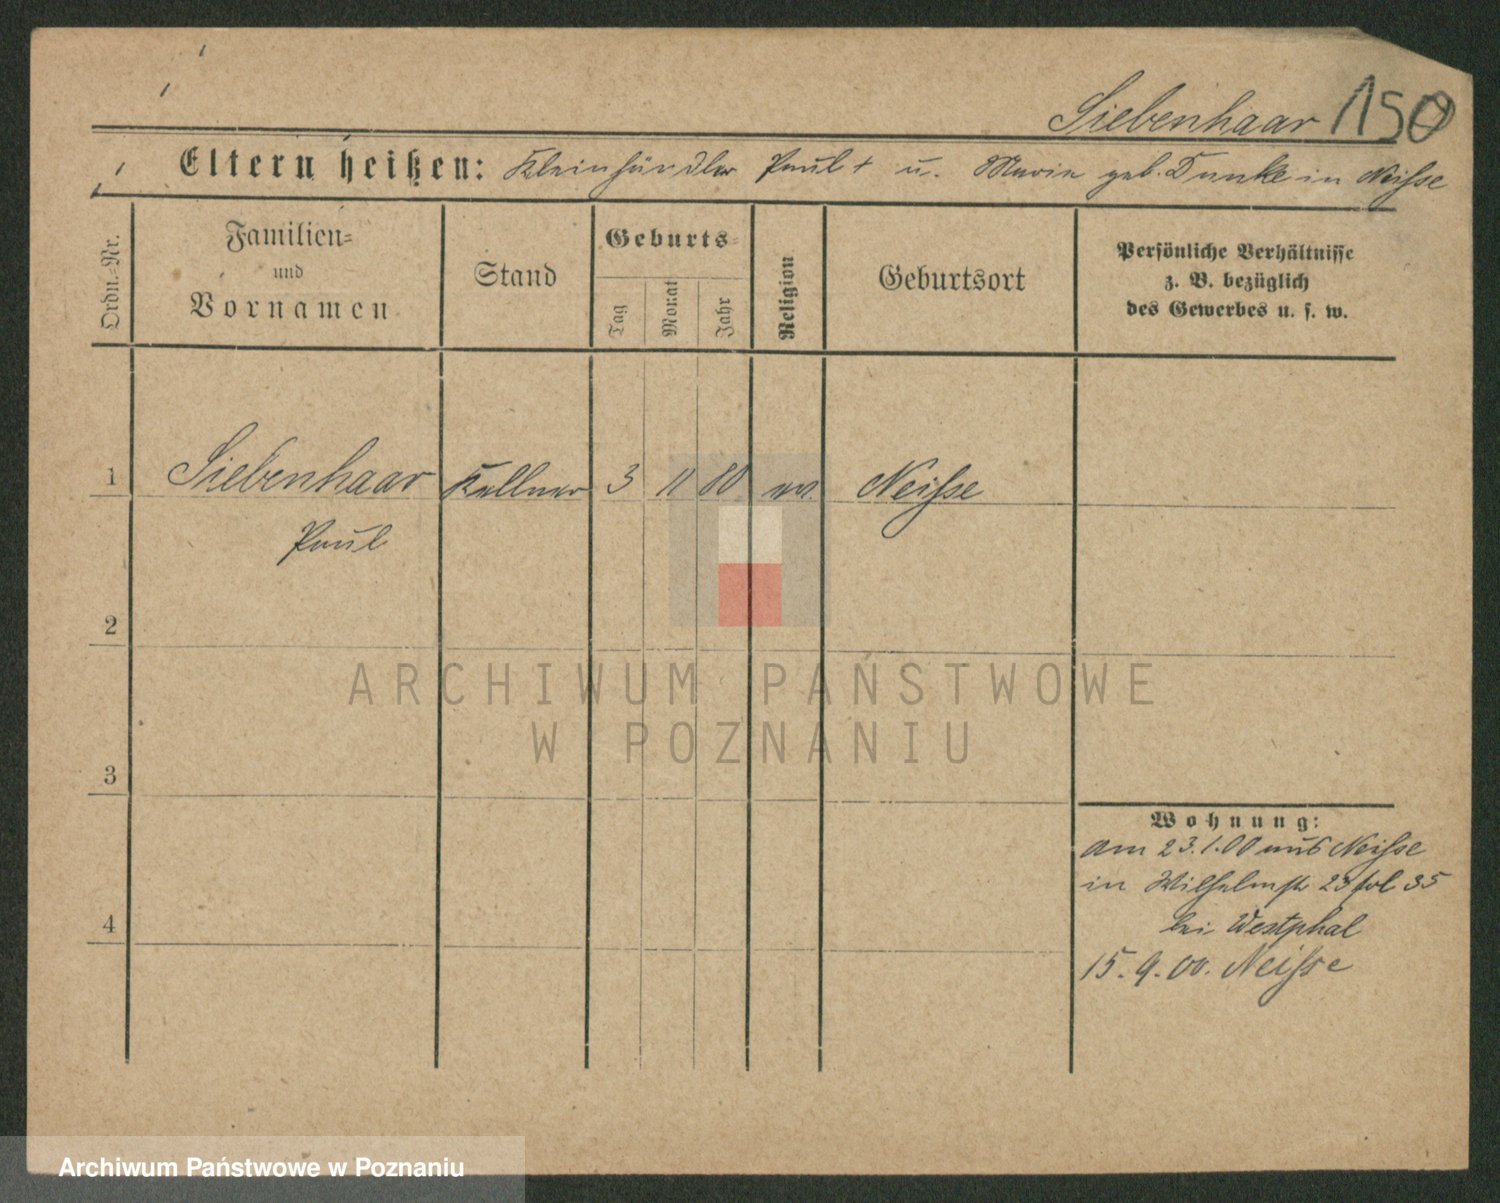 Siebenhaar 150
Eltern heißen: Kleinhändler Paul + u. Marie geb. Dunke in Neisse
Ordn.-Nr.
Familien-
und
Vornamen
Stand
Geburts-
Tag
Monat
Jahr
Religion
Geburtsort
Persönliche Verhältnisse
z. B. bezüglich
des Gewerbes u. s. w.
1 Siebenhaar Kellner 3 11 80 ev. Neisse
Paul
2
ARCHIWUM PAŃSTWOWE
W POZNANIU
3
Wohnung:
am 23.1.00 aus Neisse
in Wilhelmstr 23 fol 35
4
bei Westphal
15.9.00. Neisse
Archiwum Państwowe w Poznaniu